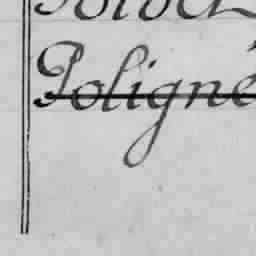 Poligné